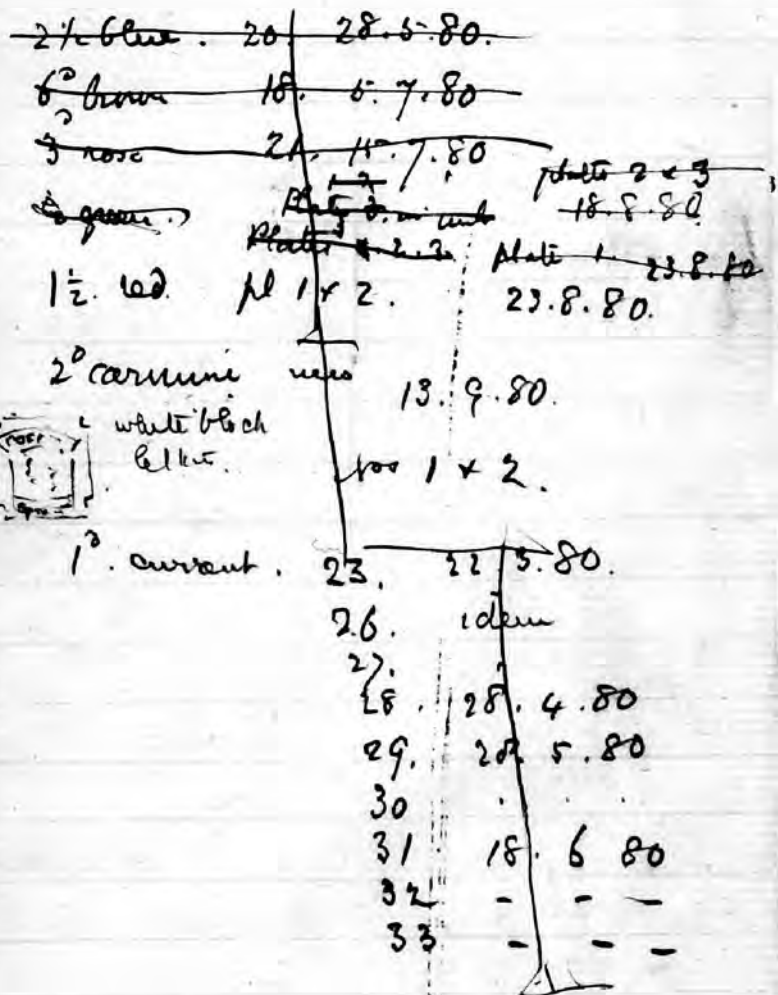 2½ blue. 20. 28.5.80.
6ᴰ brown 18. 5.7.80
3ᴰ rose 21. 15.7.80
plates 2 & 3
green. 18.8.80
Plates 2.3.
plate 1. 23.8.80
1½. red. pl 1 & 2. 23.8.80.
2ᴰ carmine
13.9.80.
white block
1 & 2.
1ᴰ. current. 23. 22 3.80.
26. idem
27.
28. 28. 4. 80
29. 28. 5. 80
30 . . .
31 18. 6 80
32 - - -
33 - - -